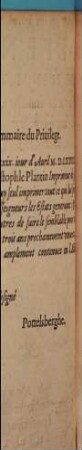 mmaire du Priuilege.
iour d'Auril M. D.
tophle Plantin Imprimeur
uy seul imprimer tout ce qui
seigneurs les Estats generaux
utres de faire le semblable
trois ans prochainement
amplement contenues
signé
Pottelsberghe.